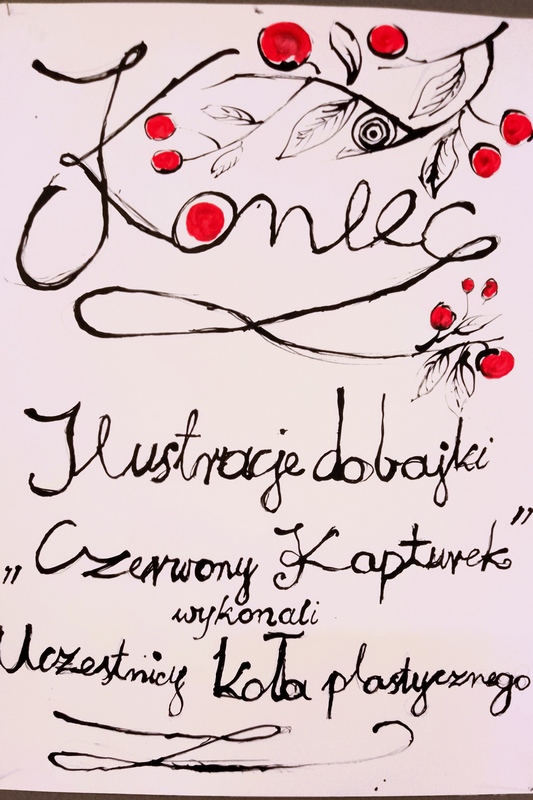 Koniec
Ilustracje do bajki
„Czerwony Kapturek”
wykonali
Uczestnicy koła plastycznego